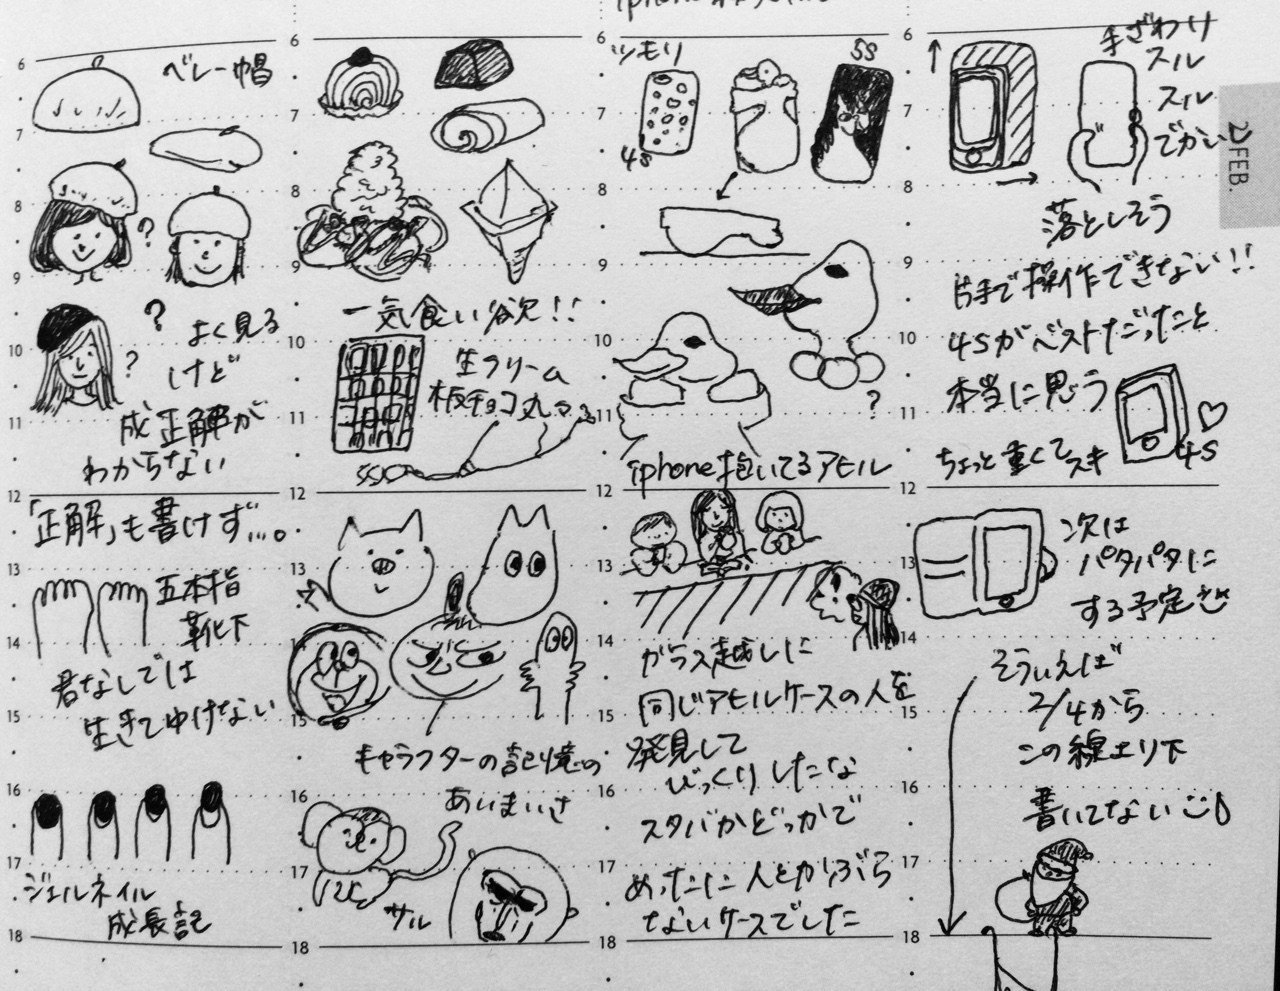 ベレー帽
よく見る
けど
正解が
わからない
「正解」も書けず…。
五本指
靴下
君なしでは
生きてゆけない
ジェルネイル
成長記
一気食い欲!!
生クリーム
板チョコ丸
キャラクターの記憶の
あいまいさ
サル
iphone
ツモリ
4S
5S
?
iphone抱いてるアヒル
ガラス越しに
同じアヒルケースの人を
発見して
びっくりしたな
スタバかどっかで
めったに人とかぶら
ないケースでした
手ざわり
スル
スル
でかい
落としそう
片手で操作できない!!
4Sがベストだったこと
本当に思う
ちょっと重くてスキ
4S
次は
パタパタに
する予定
そういえば
2/4から
この線より下
書いてない
2 FEB.
6 7 8 9 10 11 12 13 14 15 16 17 18
6 7 8 9 10 11 12 13 14 15 16 17 18
6 7 8 9 10 11 12 13 14 15 16 17 18
6 7 8 9 10 11 12 13 14 15 16 17 18